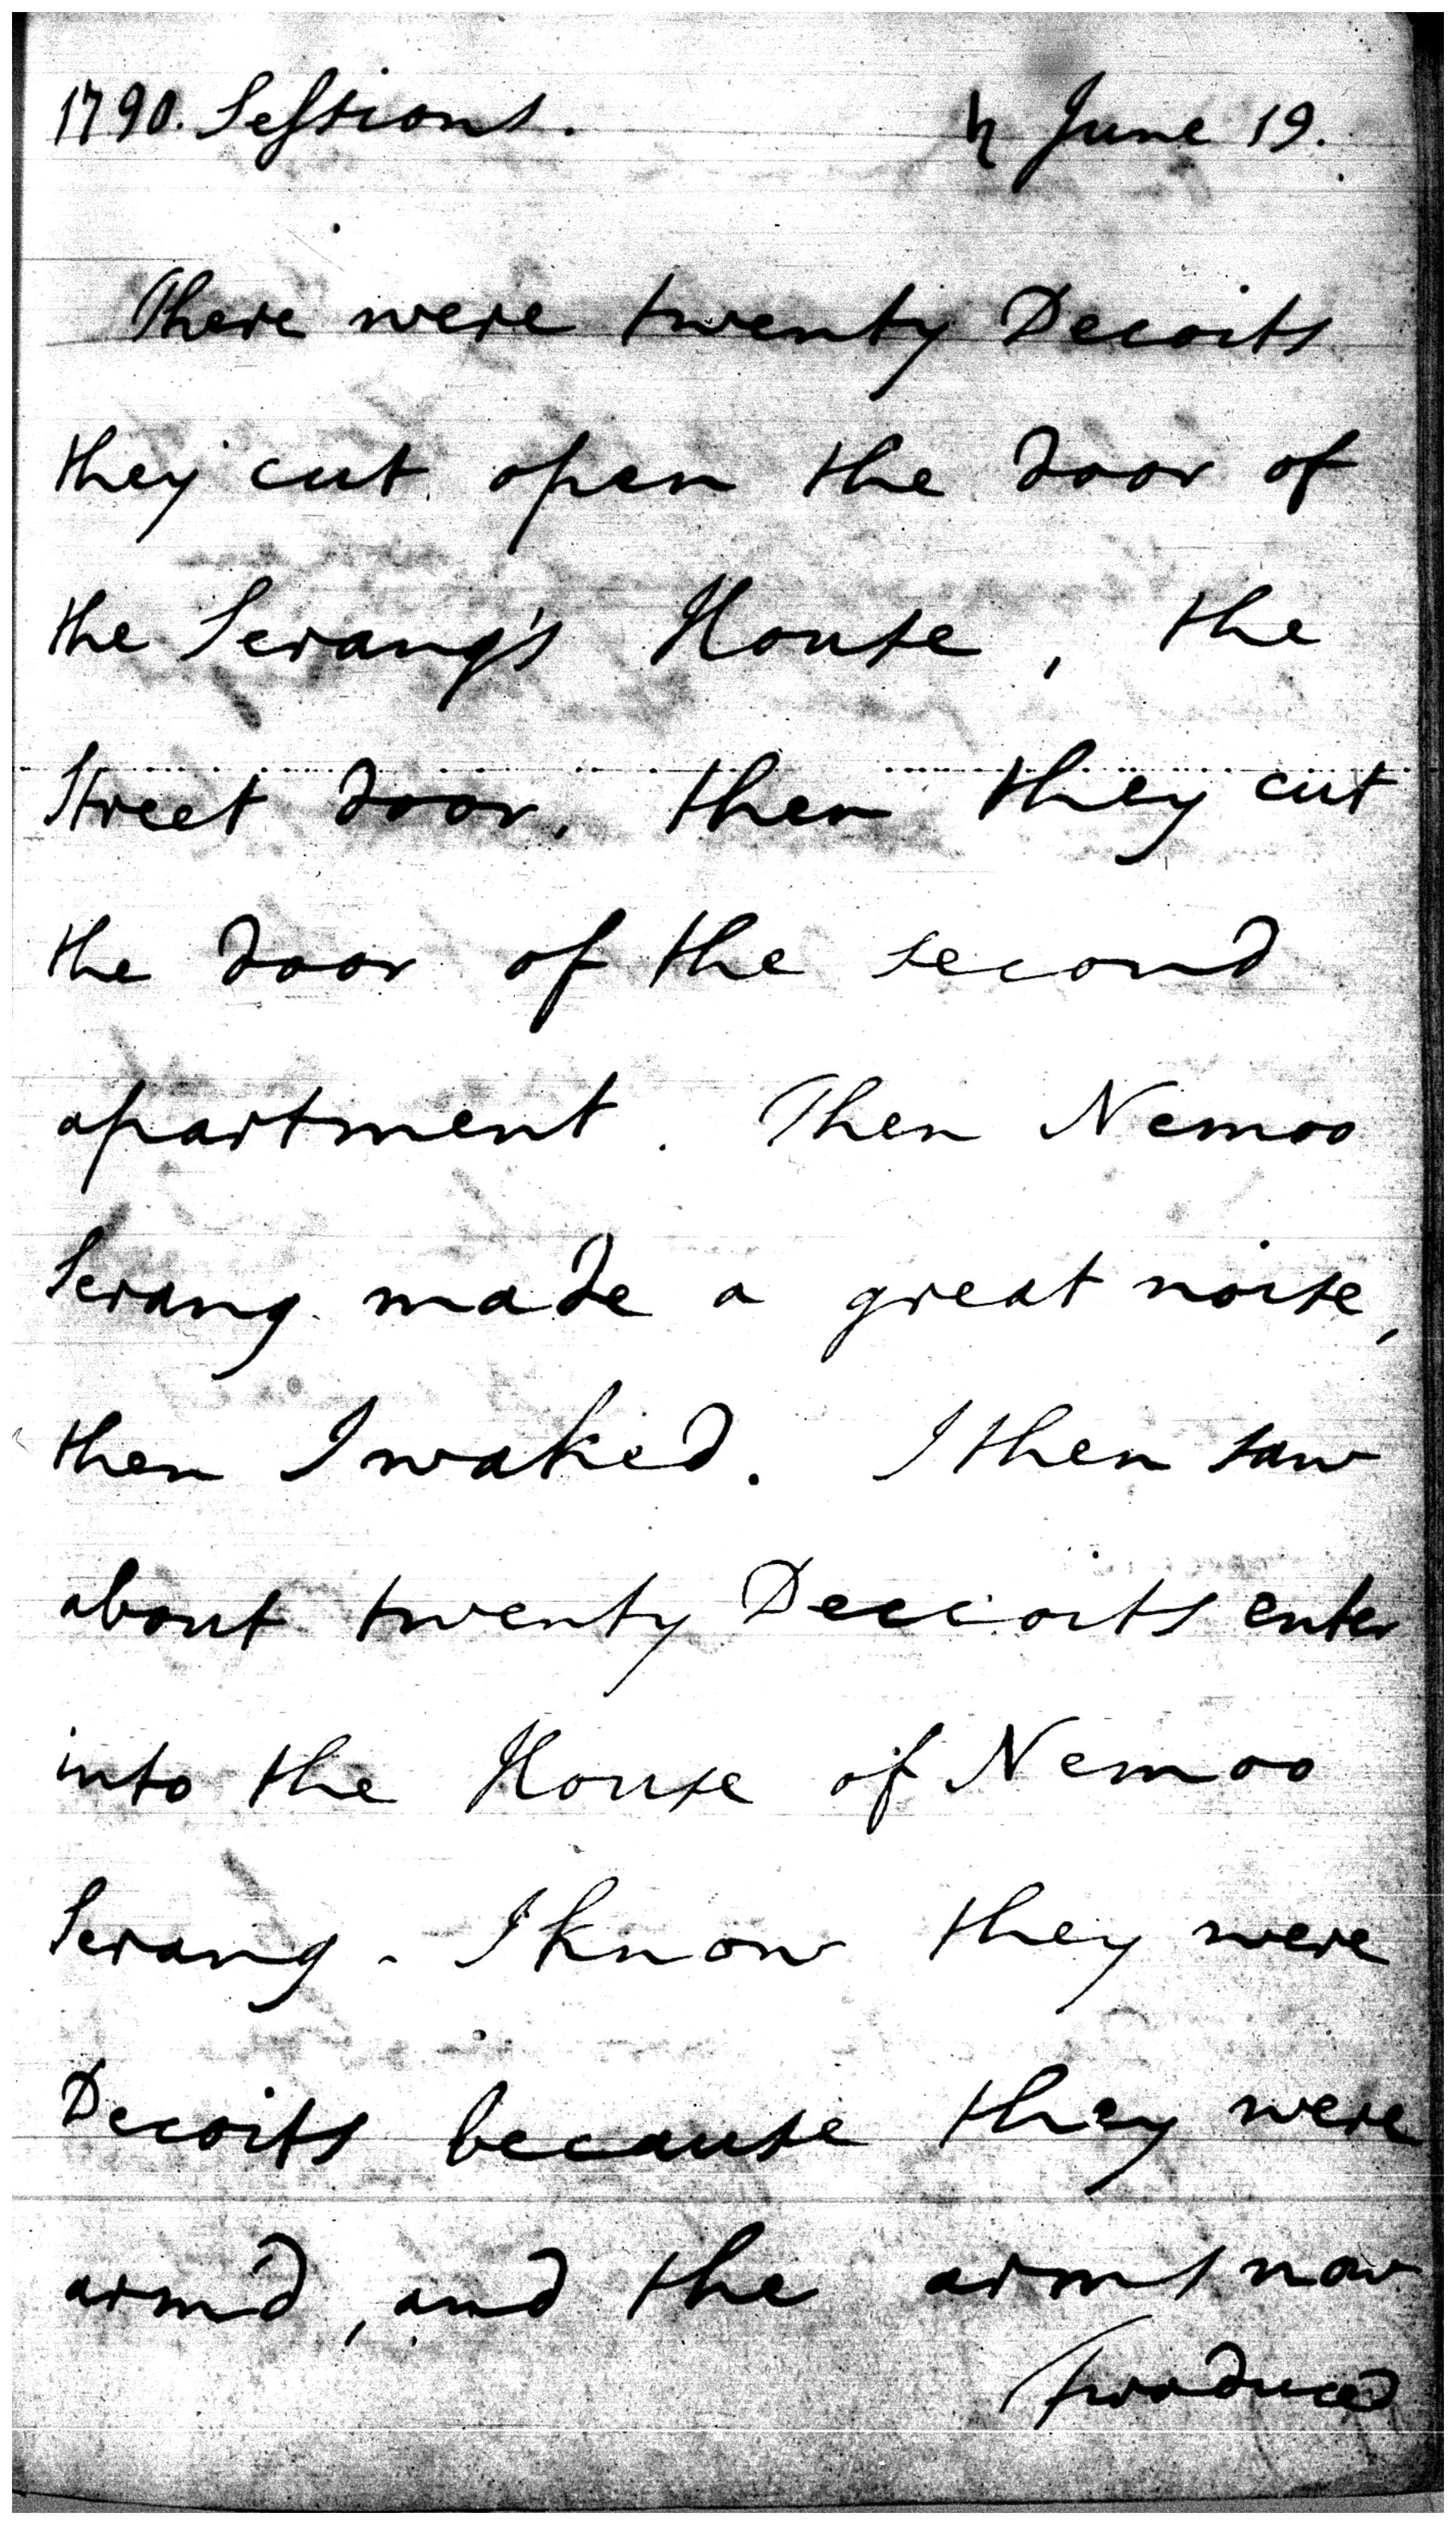 1790. Sessions. ♄ June 19.
There were twenty Decoits
they cut open the door of
the Serang's House, the
Street door, then they cut
the door of the second
apartment. Then Nemoo
Serang made a great noise,
then I waked. I then saw
about twenty Deccoits enter
into the House of Nemoo
Serang - I know they were
Decoits because they were
arm'd, and the arms now
produced